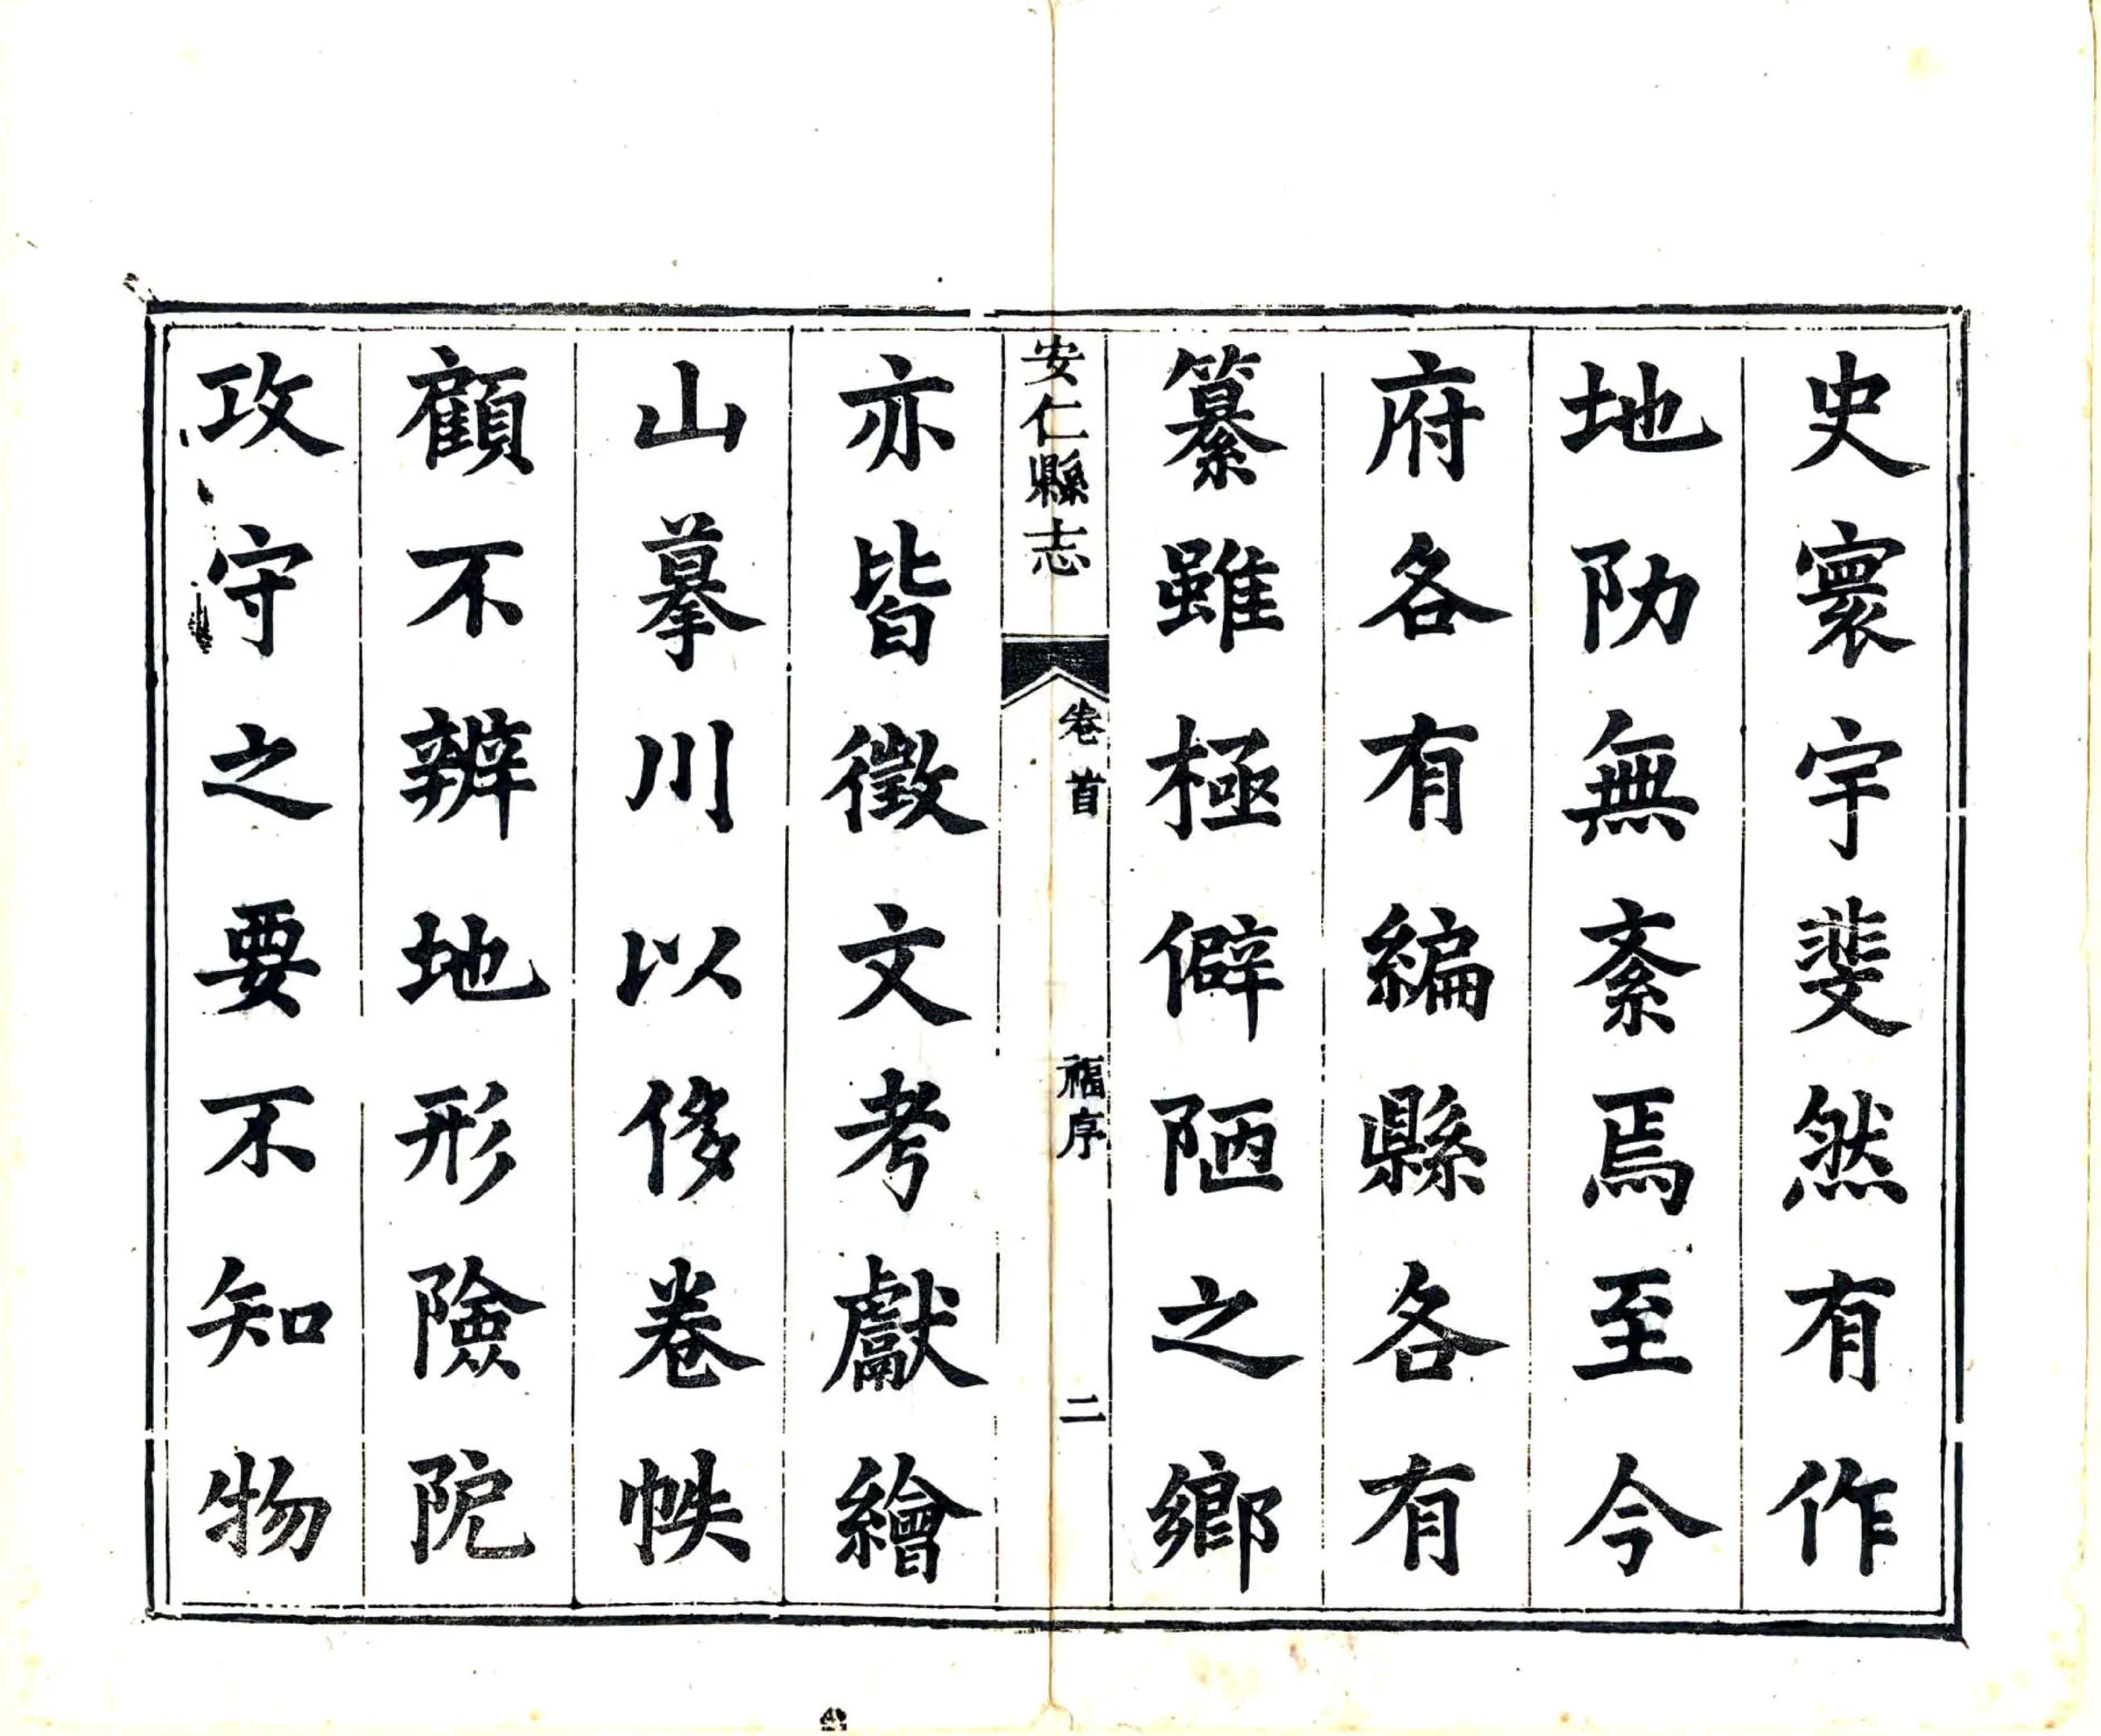 史寰宇斐然有作
地阞無紊焉至今
府各有編縣各有
纂雖極僻陋之鄉
安仁縣志
卷首
福序
二
亦皆徵文考獻繪
山摹川以侈卷帙
顧不辨地形險阸
攻守之要不知物